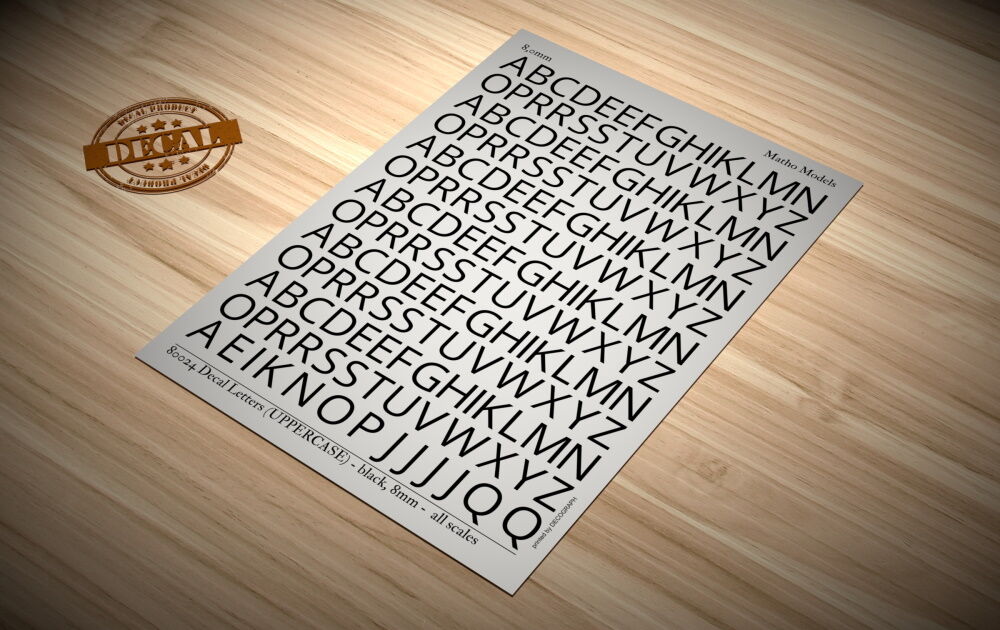 DECAL PRODUCT
DECAL
DECAL PRODUCT
8,0mm
Matho Models
ABCDEEFGHIKLMN
OPRRSSTUVWXYZ
ABCDEEFGHIKLMN
OPRRSSTUVWXYZ
ABCDEEFGHIKLMN
OPRRSSTUVWXYZ
ABCDEEFGHIKLMN
OPRRSSTUVWXYZ
ABCDEEFGHIKLMN
OPRRSSTUVWXYZ
ABCDEEFGHIKLMN
OPRRSSTUVWXYZ
AEIKNOP JJJJQQ
80024 Decal Letters (UPPERCASE) - black, 8mm - all scales
printed by DECOGRAPH